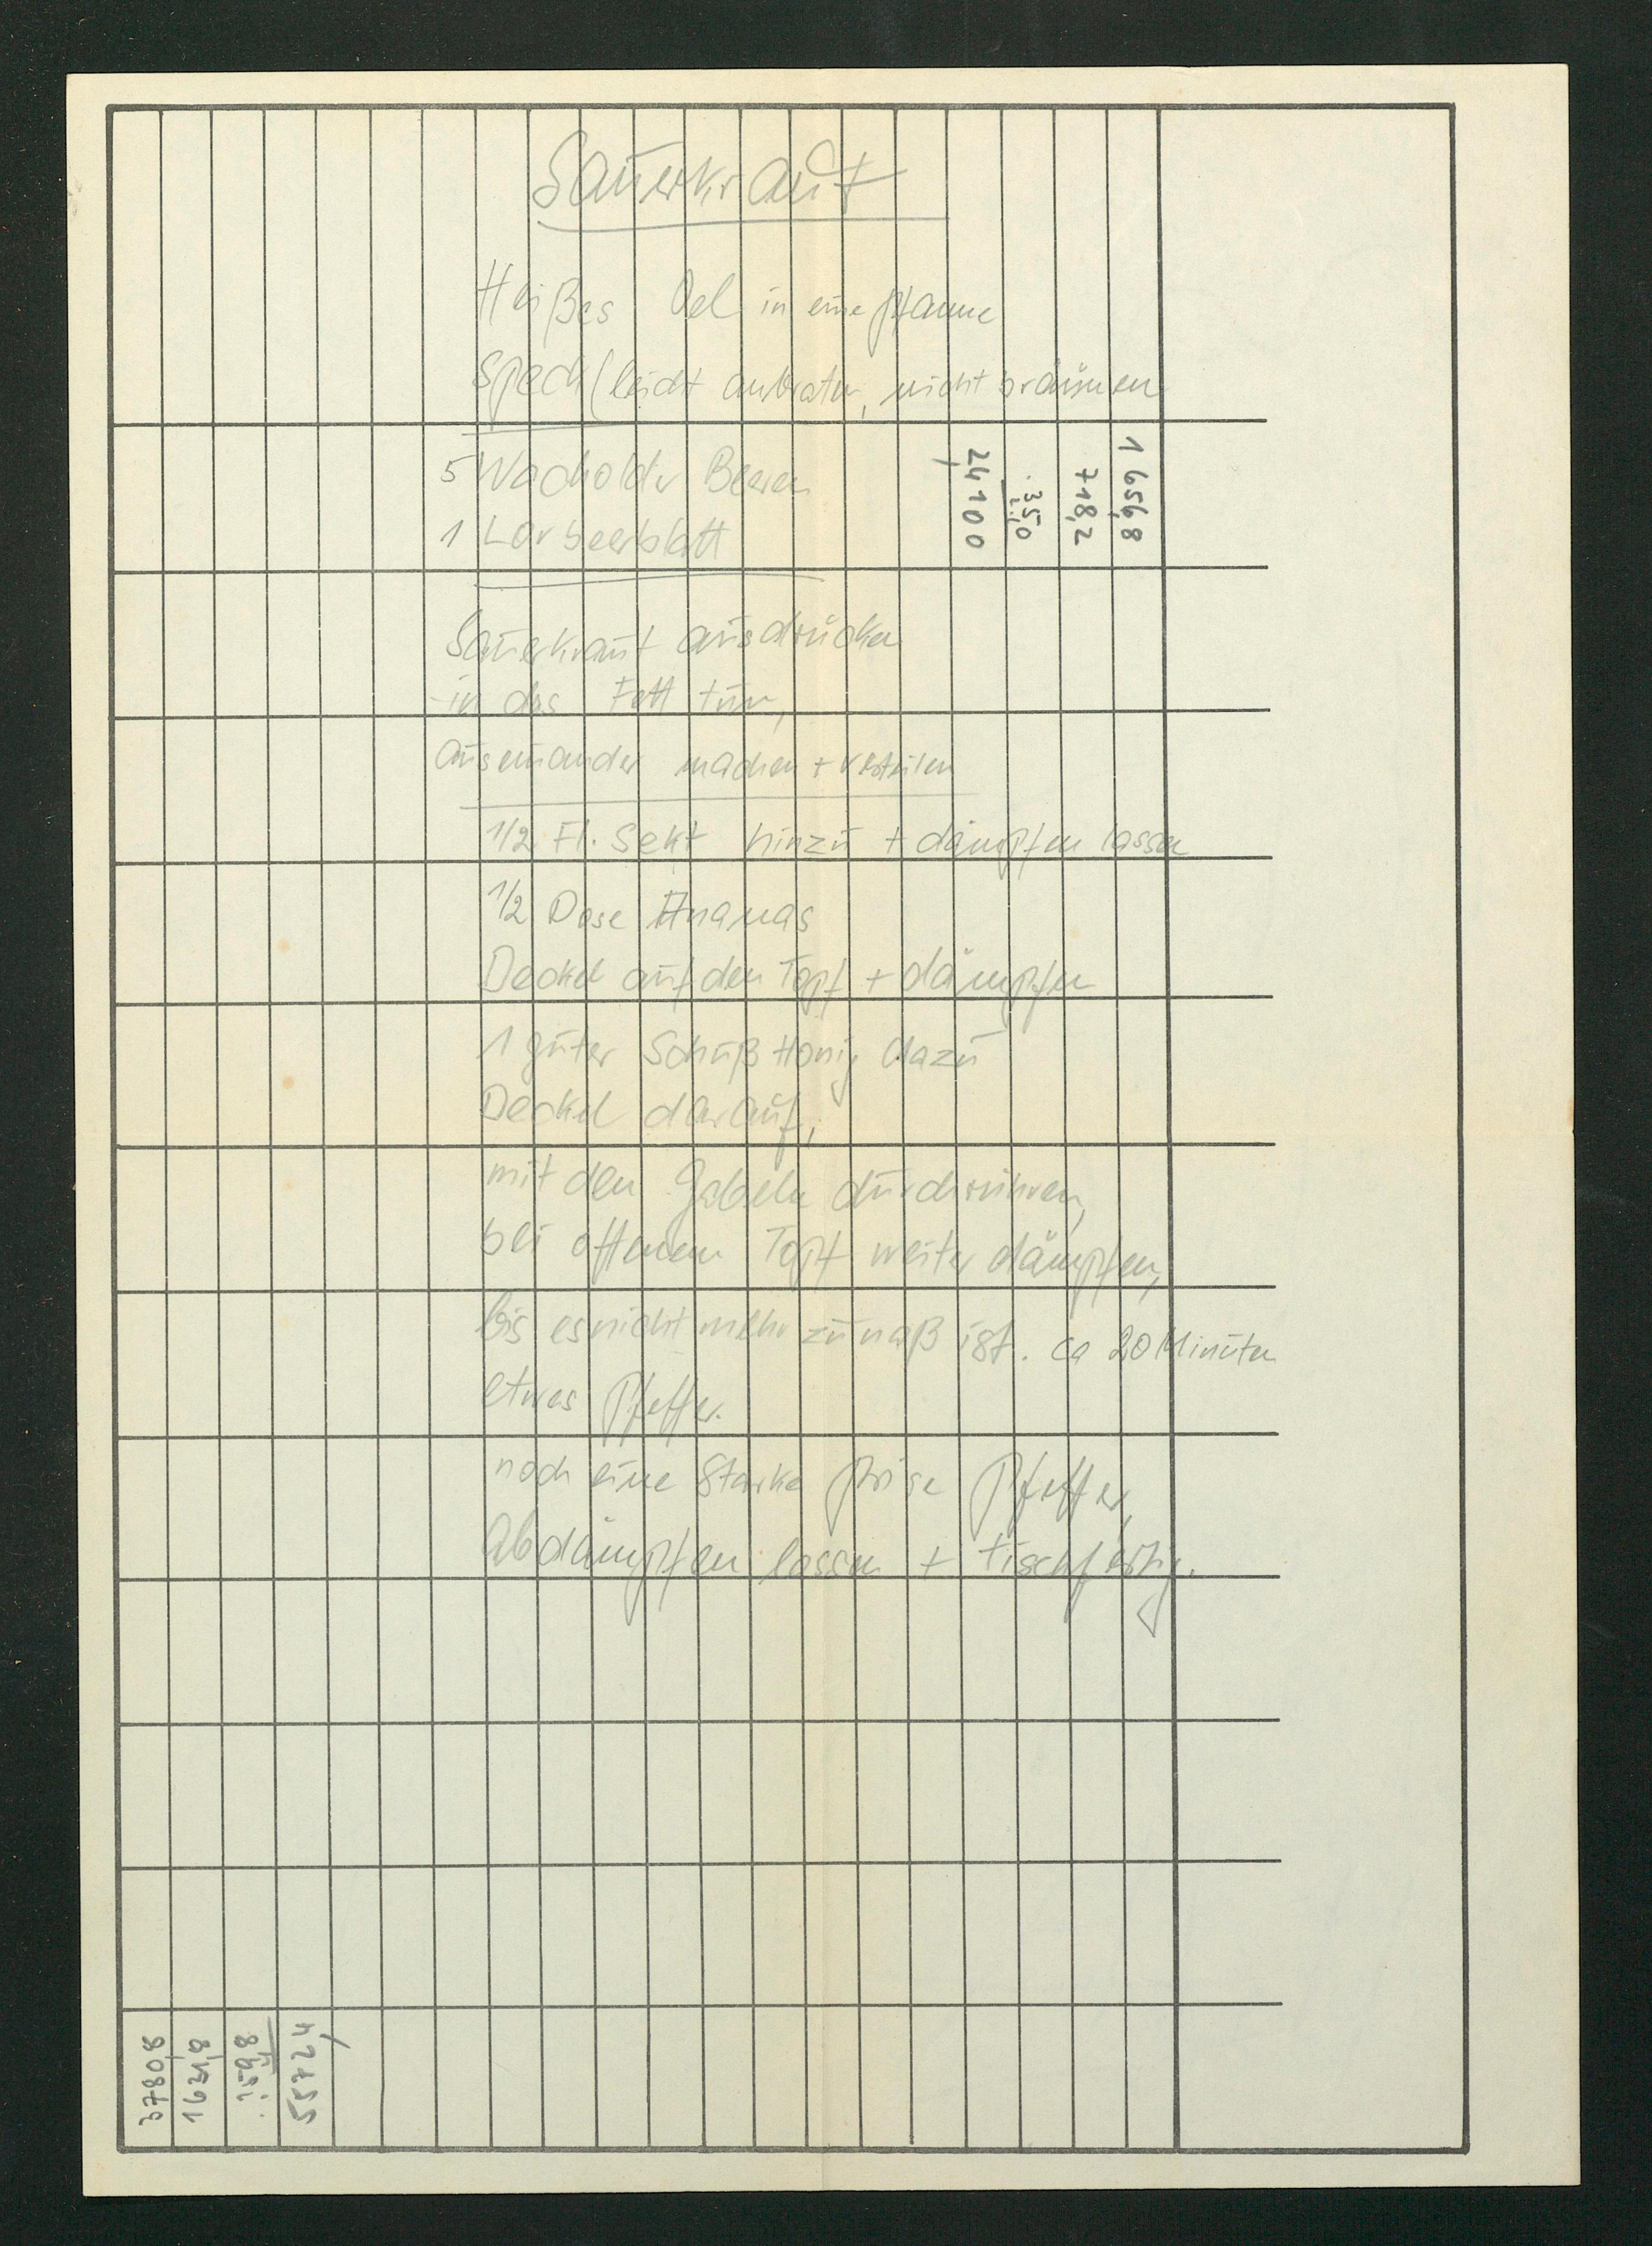 Sauerkraut
Heißes Oel in eine Pfanne
Speck (leicht anbraten, nicht bräunen
5 Wacholder Beeren
1 Lorbeerblatt
Sauerkraut ausdrücken
in das Fett tun,
auseinander machen + verteilen
1/2 Fl. Sekt hinzu + dämpfen lassen
1/2 Dose Ananas
Deckel auf den Topf + dämpfen
1 guter Schuß Honig dazu
Deckel darauf,
mit den Gabeln durchrühren,
bei offenem Topf weiter dämpfen,
bis es nicht mehr zu naß ist. ca 20 Minuten
etwas Pfeffer.
noch eine starke Prise Pfeffer,
Abdämpfen lassen + tischfertig.
1 656,8
718,2
35,0
24100
3780,8
1631,8
159,8
5572,4